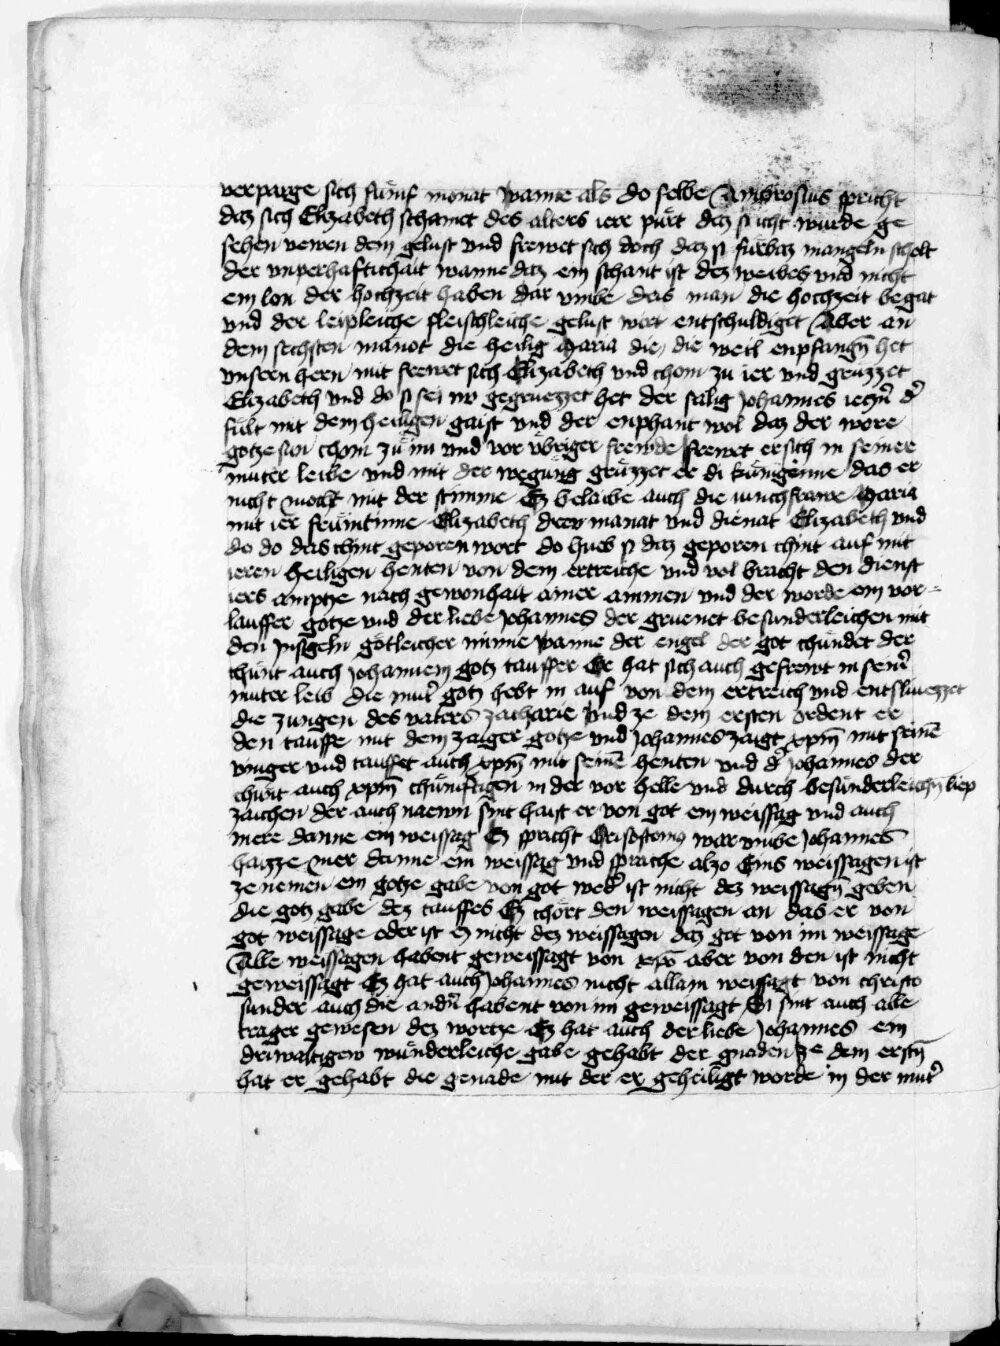 verparge sich fümf monat wanne als do selbe Ambrosius spricht
daz sich Elizabeth schamet des alters irer pürt daz si icht wurde ge
sehen vewen dem gelust vnd frewet sich doch daz si fürbaz mangeln scholt
der vnperhaftichait wanne daz ein schant ist dez weibes vnd nicht
ein lon der hochzeit haben dar vmbe das man die hochzeit begat
vnd der leipleiche fleischleiche gelust wirt entschuldiget Aber an
dem sechsten manot die heilig Maria die, die weil enpfangn̄ het
vnsern hern mit frewet sich Elizabeth vnd chom zu ier vnd grüzzet
Elizabeth vnd do si sei nv gegruezzet het der salig Johannes
fült mit dem heiligen gaist vnd der enphant wol daz der wore
gotze sun chom zü im vnd vor vbriger frewde frewet er sich in seiner
muter leibe vnd mit der wegüng grüzzet er di künigenne das er
nicht mocht mit der stimme Ez belaibe auch die iunchfrawe Maria
mit ier früintinne Elizabeth drev manat vnd dienat Elizabeth vnd
do do das chint geporen wort do hueb si daz geporen chint auf mit
ieren heiligen henten von dem ertreiche vnd vol bracht den dienst
iers amptze nach gewonhait ainer ammen vnd der worde ein vor-
lauffer gotze vnd der liebe Johannes der gruenet besunderleichen mit
den Jnsigeln götleicher minne wanne der engel der got chündet der
chunt auch Johannem gotz tauffer Er hat sich auch gefrewt in seinr̄
muter leib die mut̄ gotz hebt in auf von dem ertreich vnd entsliuezzet
die zungen des vaters zacharie vnd ze dem ersten ordent er
den tauffe mit dem zaiger gotze vnd Johannes zaigt xpm̄ mit seinē
vinger vnd tauffet auch xpm̄ mit seinē henten vnd d̄ Johannes der
chünt auch xpm̄ chünftigen in der vor helle vnd durch besünderleichn̄ liep
zaichen der auch naewn sint haist er von got ein weissag vnd auch
mere danne ein weissag Ez spricht Crisostomus war vmbe Johannes
hazze mer danne ein weissag vnd sprache alzo Eins weissagen ist
ze nemen ein gotze gabe von got wed̄ ist nicht dez weissagn̄ geben
die gotz gabe dez tauffes Ez chört den weissagen an das er von
got weissage oder ist ez nicht dez weissagen daz got von im weissage
Alle weissagen habent geweissagt von xp̄o aber von den ist nicht
geweissagt Ez hat auch Johannes nicht allain weissagt von christo
sunder auch die andn̄ habent von im geweissagt Si sint auch alle
trager gewesen dez wortze Ez hat auch der liebe Johannes ein
drivaltigew wunderleiche gabe gehabt der gnaden ze dem erstn̄
hat er gehabt die genade mit der er geheiligt worde in der mut̄